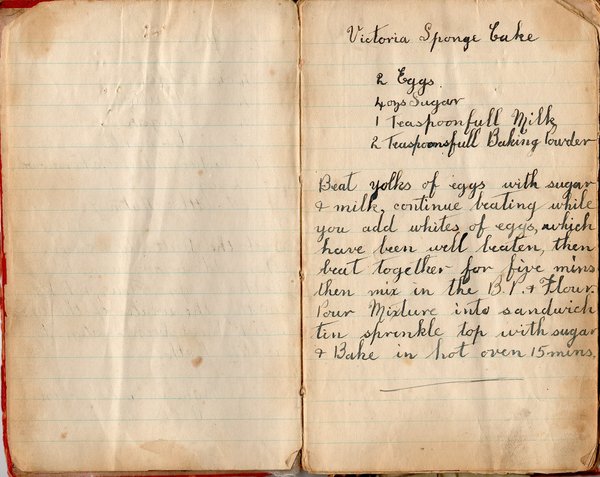 Victoria Sponge Cake
2 Eggs.
4ozs Sugar
1 Teaspoonfull Milk
2 Teaspoonsfull Baking Powder
Beat yolks of eggs with sugar
& milk, continue beating while
you add whites of eggs, which
have been well beaten, then
beat together for five mins
then mix in the B.P. & Flour.
Pour Mixture into sandwich
tin sprinkle top with sugar
& Bake in hot oven 15 mins.